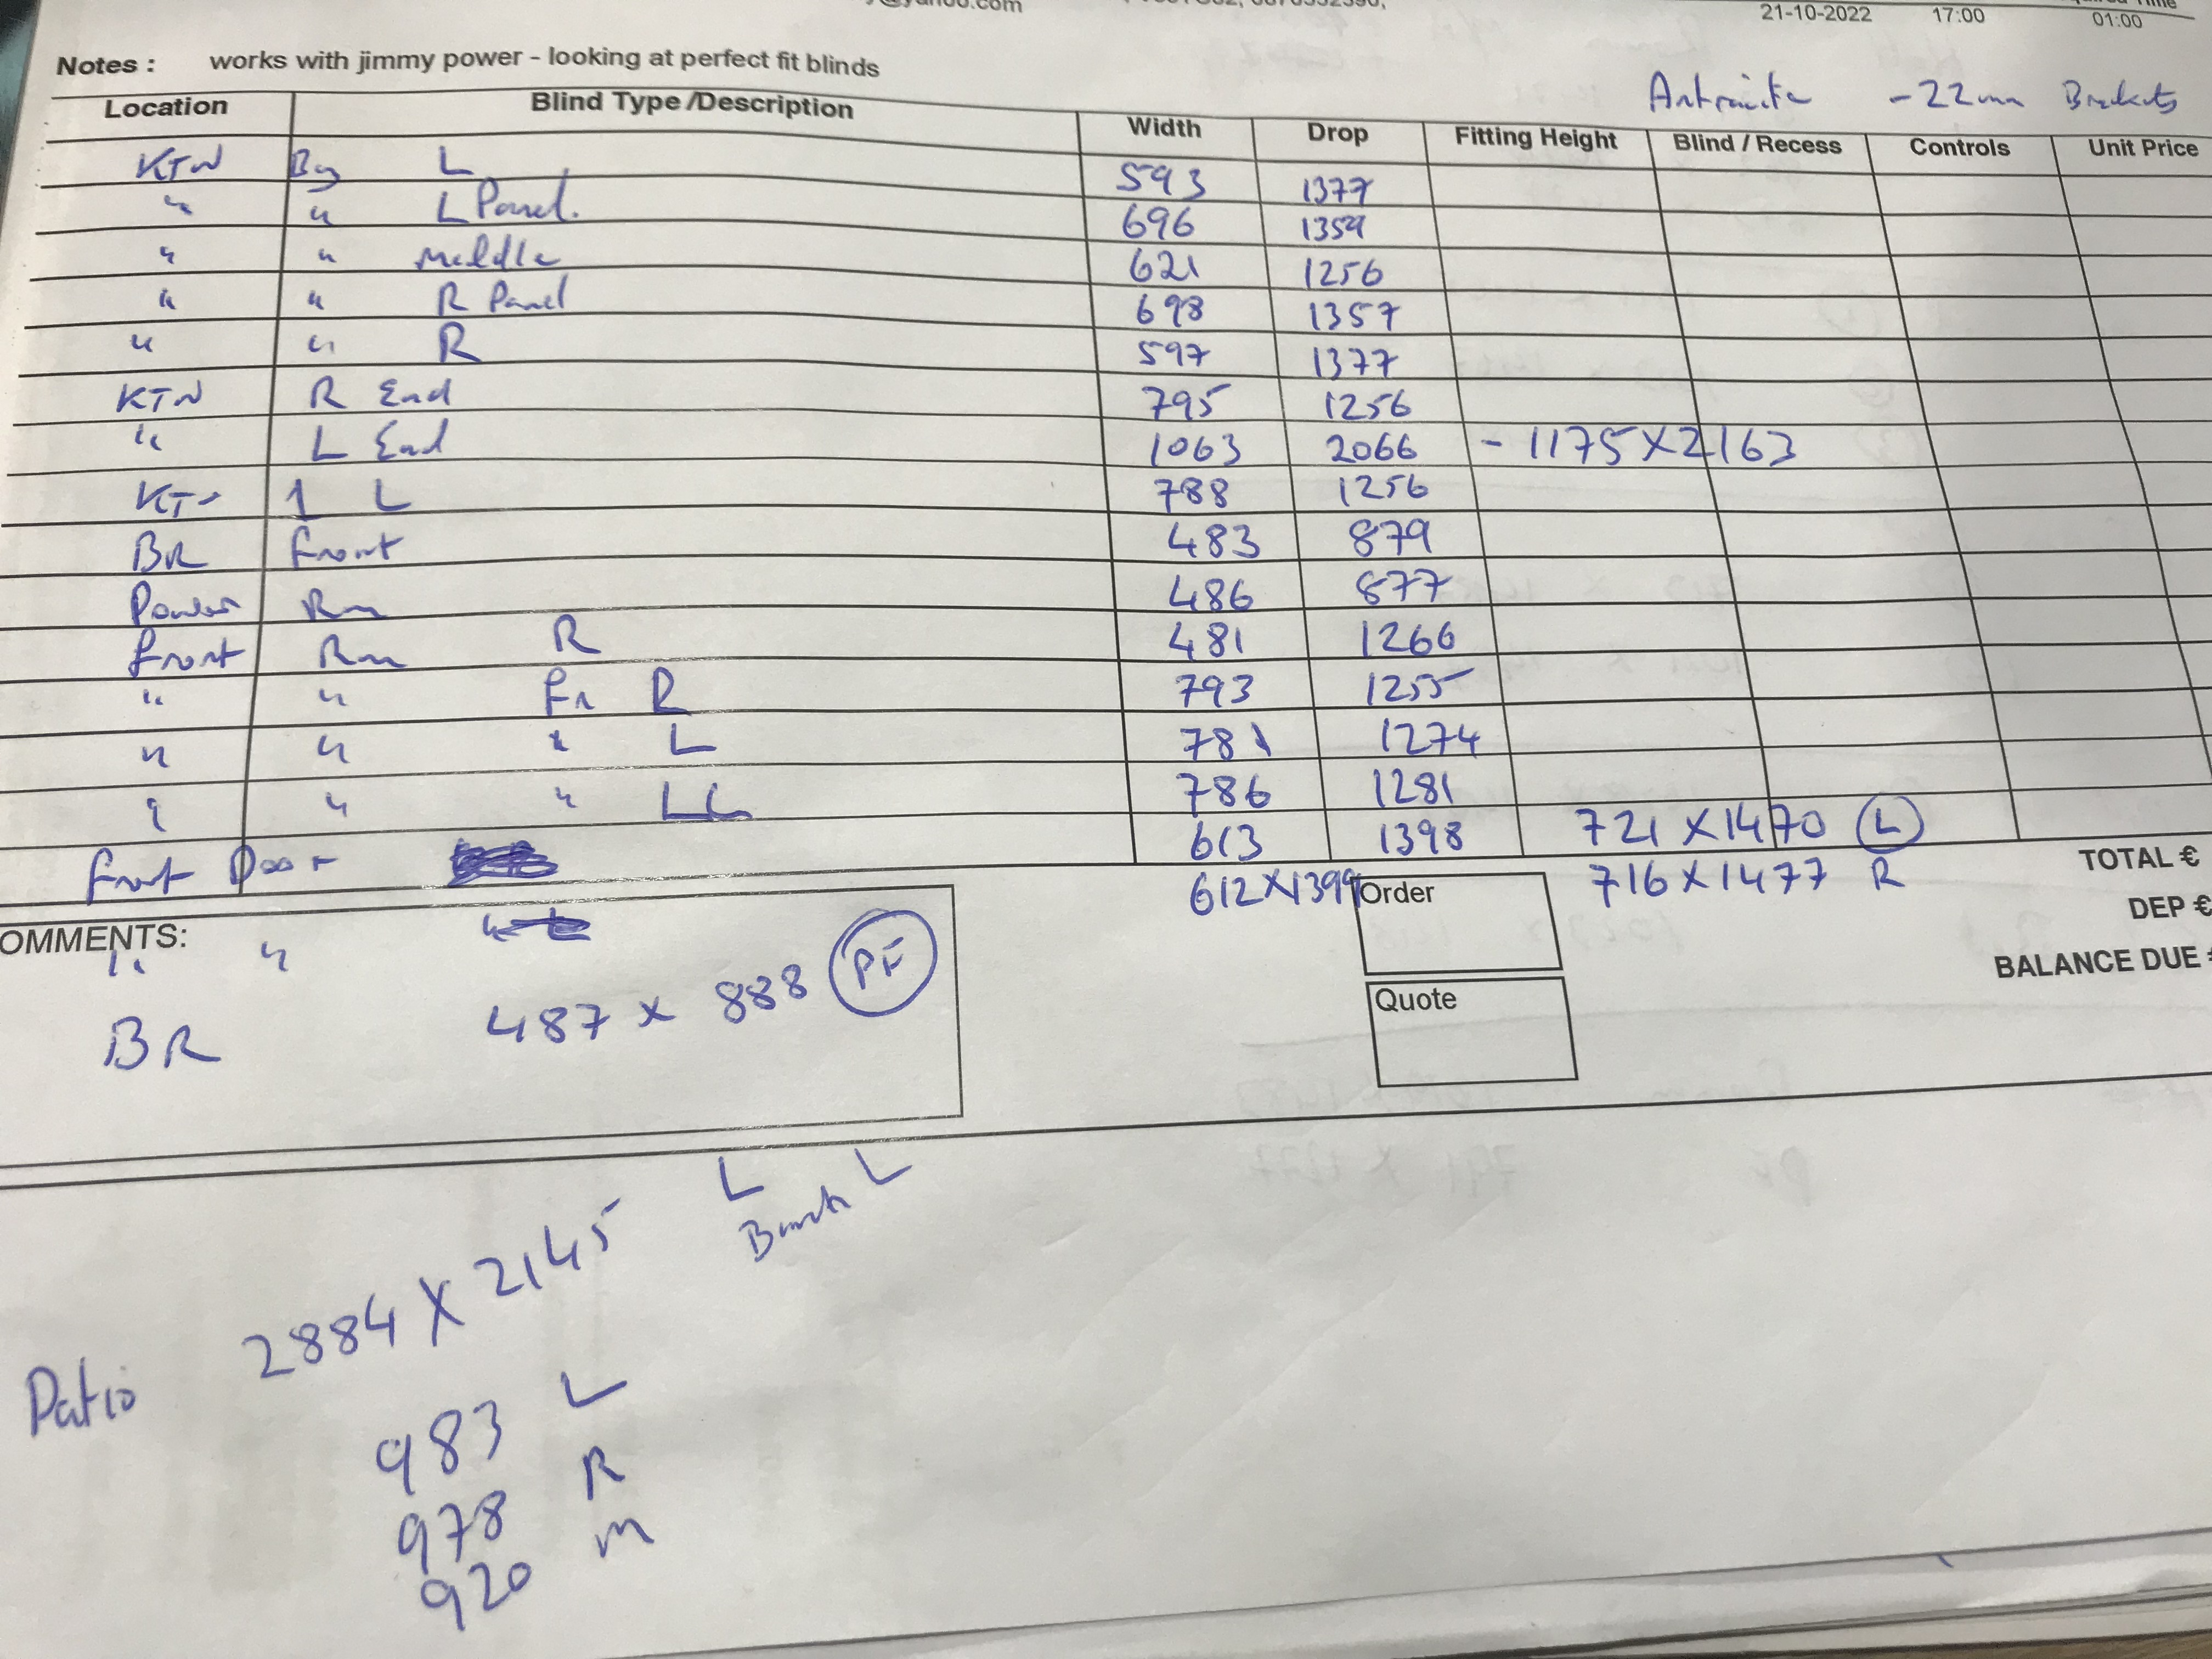 @yahoo.com
21-10-2022 17:00 01:00
Notes : works with jimmy power - looking at perfect fit blinds
Antracite - 22mm Brackets
Location Blind Type /Description Width Drop Fitting Height Blind / Recess Controls Unit Price
KTN Bay L 593 1377
" " L Panel. 696 1359
" " Middle 621 1256
" " R Panel 698 1357
" " R 597 1377
KTN R End 795 1256
" L End 1063 2066 - 1175 X 2163
KTN 1 L 788 1256
BR Front 483 879
Powder Rm 486 877
Front Rm R 481 1266
" " Fr R 793 1255
" " " L 781 1274
" " " LL 786 1281
Front Door 613 1398 721 X 1470 L
" " 612 X 1399 716 X 1477 R
TOTAL €
Order
DEP €
OMMENTS:
BALANCE DUE
BR 487 x 888 PF
Quote
Patio 2884 X 2145 L
L
983 L
978 R
920 m